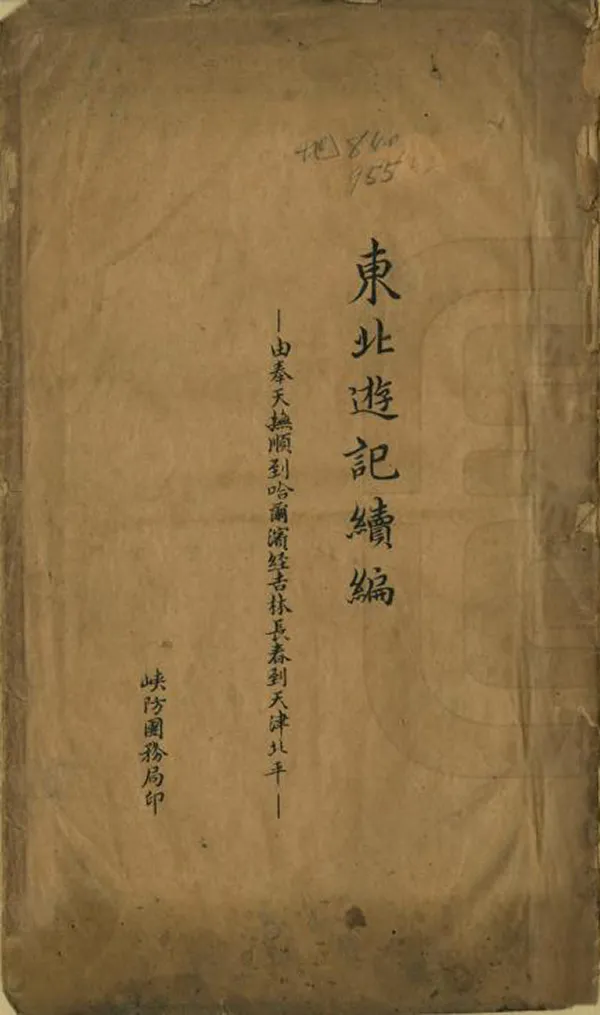 地 860
955
東北遊記續編
—由奉天撫順到哈爾濱經吉林長春到天津北平—
峽防團務局印